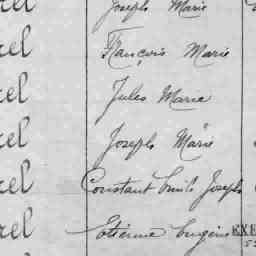 rel Joseph Marie
rel François Marie
rel Jules Marie
rel Joseph Marie
rel Constant Emile Joseph
rel Etienne Eugène EXE